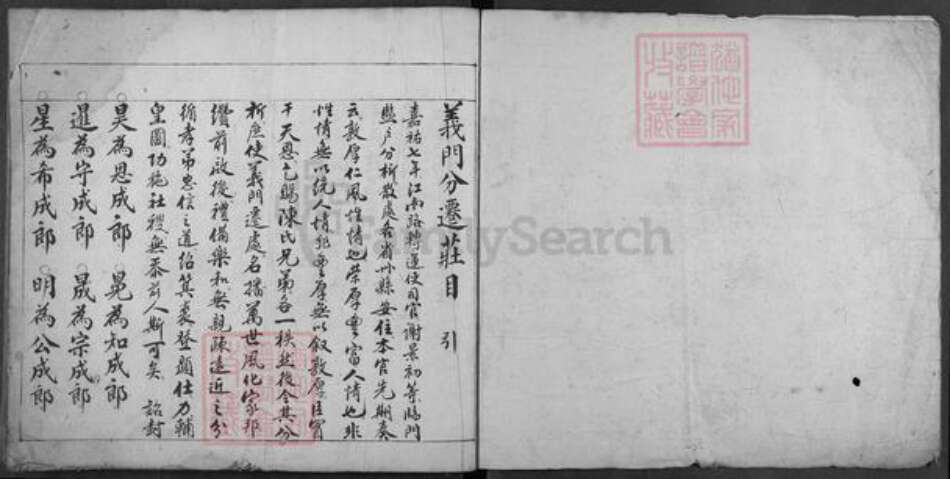 義門分遷莊目 引
嘉祐七年江南路轉運使司官謝景初等臨門
監戶分析數處各省州縣安住本官先期奏
云敦厚仁風性情也榮厚豐富人情也非
性情無以統人情非豐厚無以叙敦厚臣冒
干天恩乞賜陳氏兄弟各一秩然後令其分
析庶使義門遷處名播萬世風化家邦
纘前啟後禮備樂和無親疎遠近之分
循孝弟忠信之道紹箕裘登顯仕力輔
皇圖功施社稷無忝前人斯可矣 詔封
昊為恩成郎 晃為知成郎
暹為守成郎 晟為宗成郎
星為希成郎 明為公成郎
FamilySearch